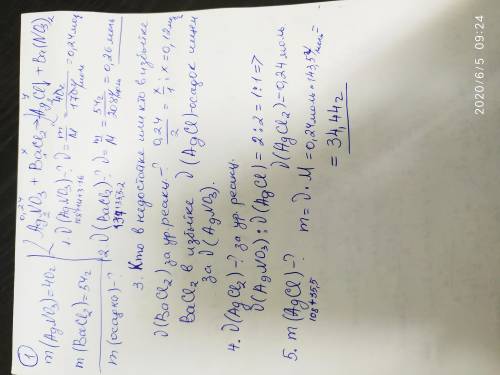 ①
0,24 x y
m(AgNO₃)=40г 2AgNO₃ + BaCl₂ → 2AgCl↓ + Ba(NO₃)₂
1. ν(AgNO₃)? ν = m/M = 40г/170г/моль = 0,24 моль
m(BaCl₂)=54г
2. ν(BaCl₂)? ν = m/M = 54г/208г/моль = 0,26 моль
137+35,5·2
m(осадко)-?
3. Кто в недостатке или кто в избытке
ν(BaCl₂) за ур. реакц-? 0,24/2 = x/1; x = 0,12 моль
BaCl₂ в избытке ν(AgCl)-осадок ищем
за ν(AgNO₃).
4. ν(AgCl₂)-? за ур. реакц.
ν(AgNO₃):ν(AgCl) = 2:2 = 1:1 =>
ν(AgCl₂) = 0,24 моль
5. m(AgCl)-? m = ν·M = 0,24 моль · 143,5г/моль =
108+35,5
= 34,44г
2020/6/5 09:24